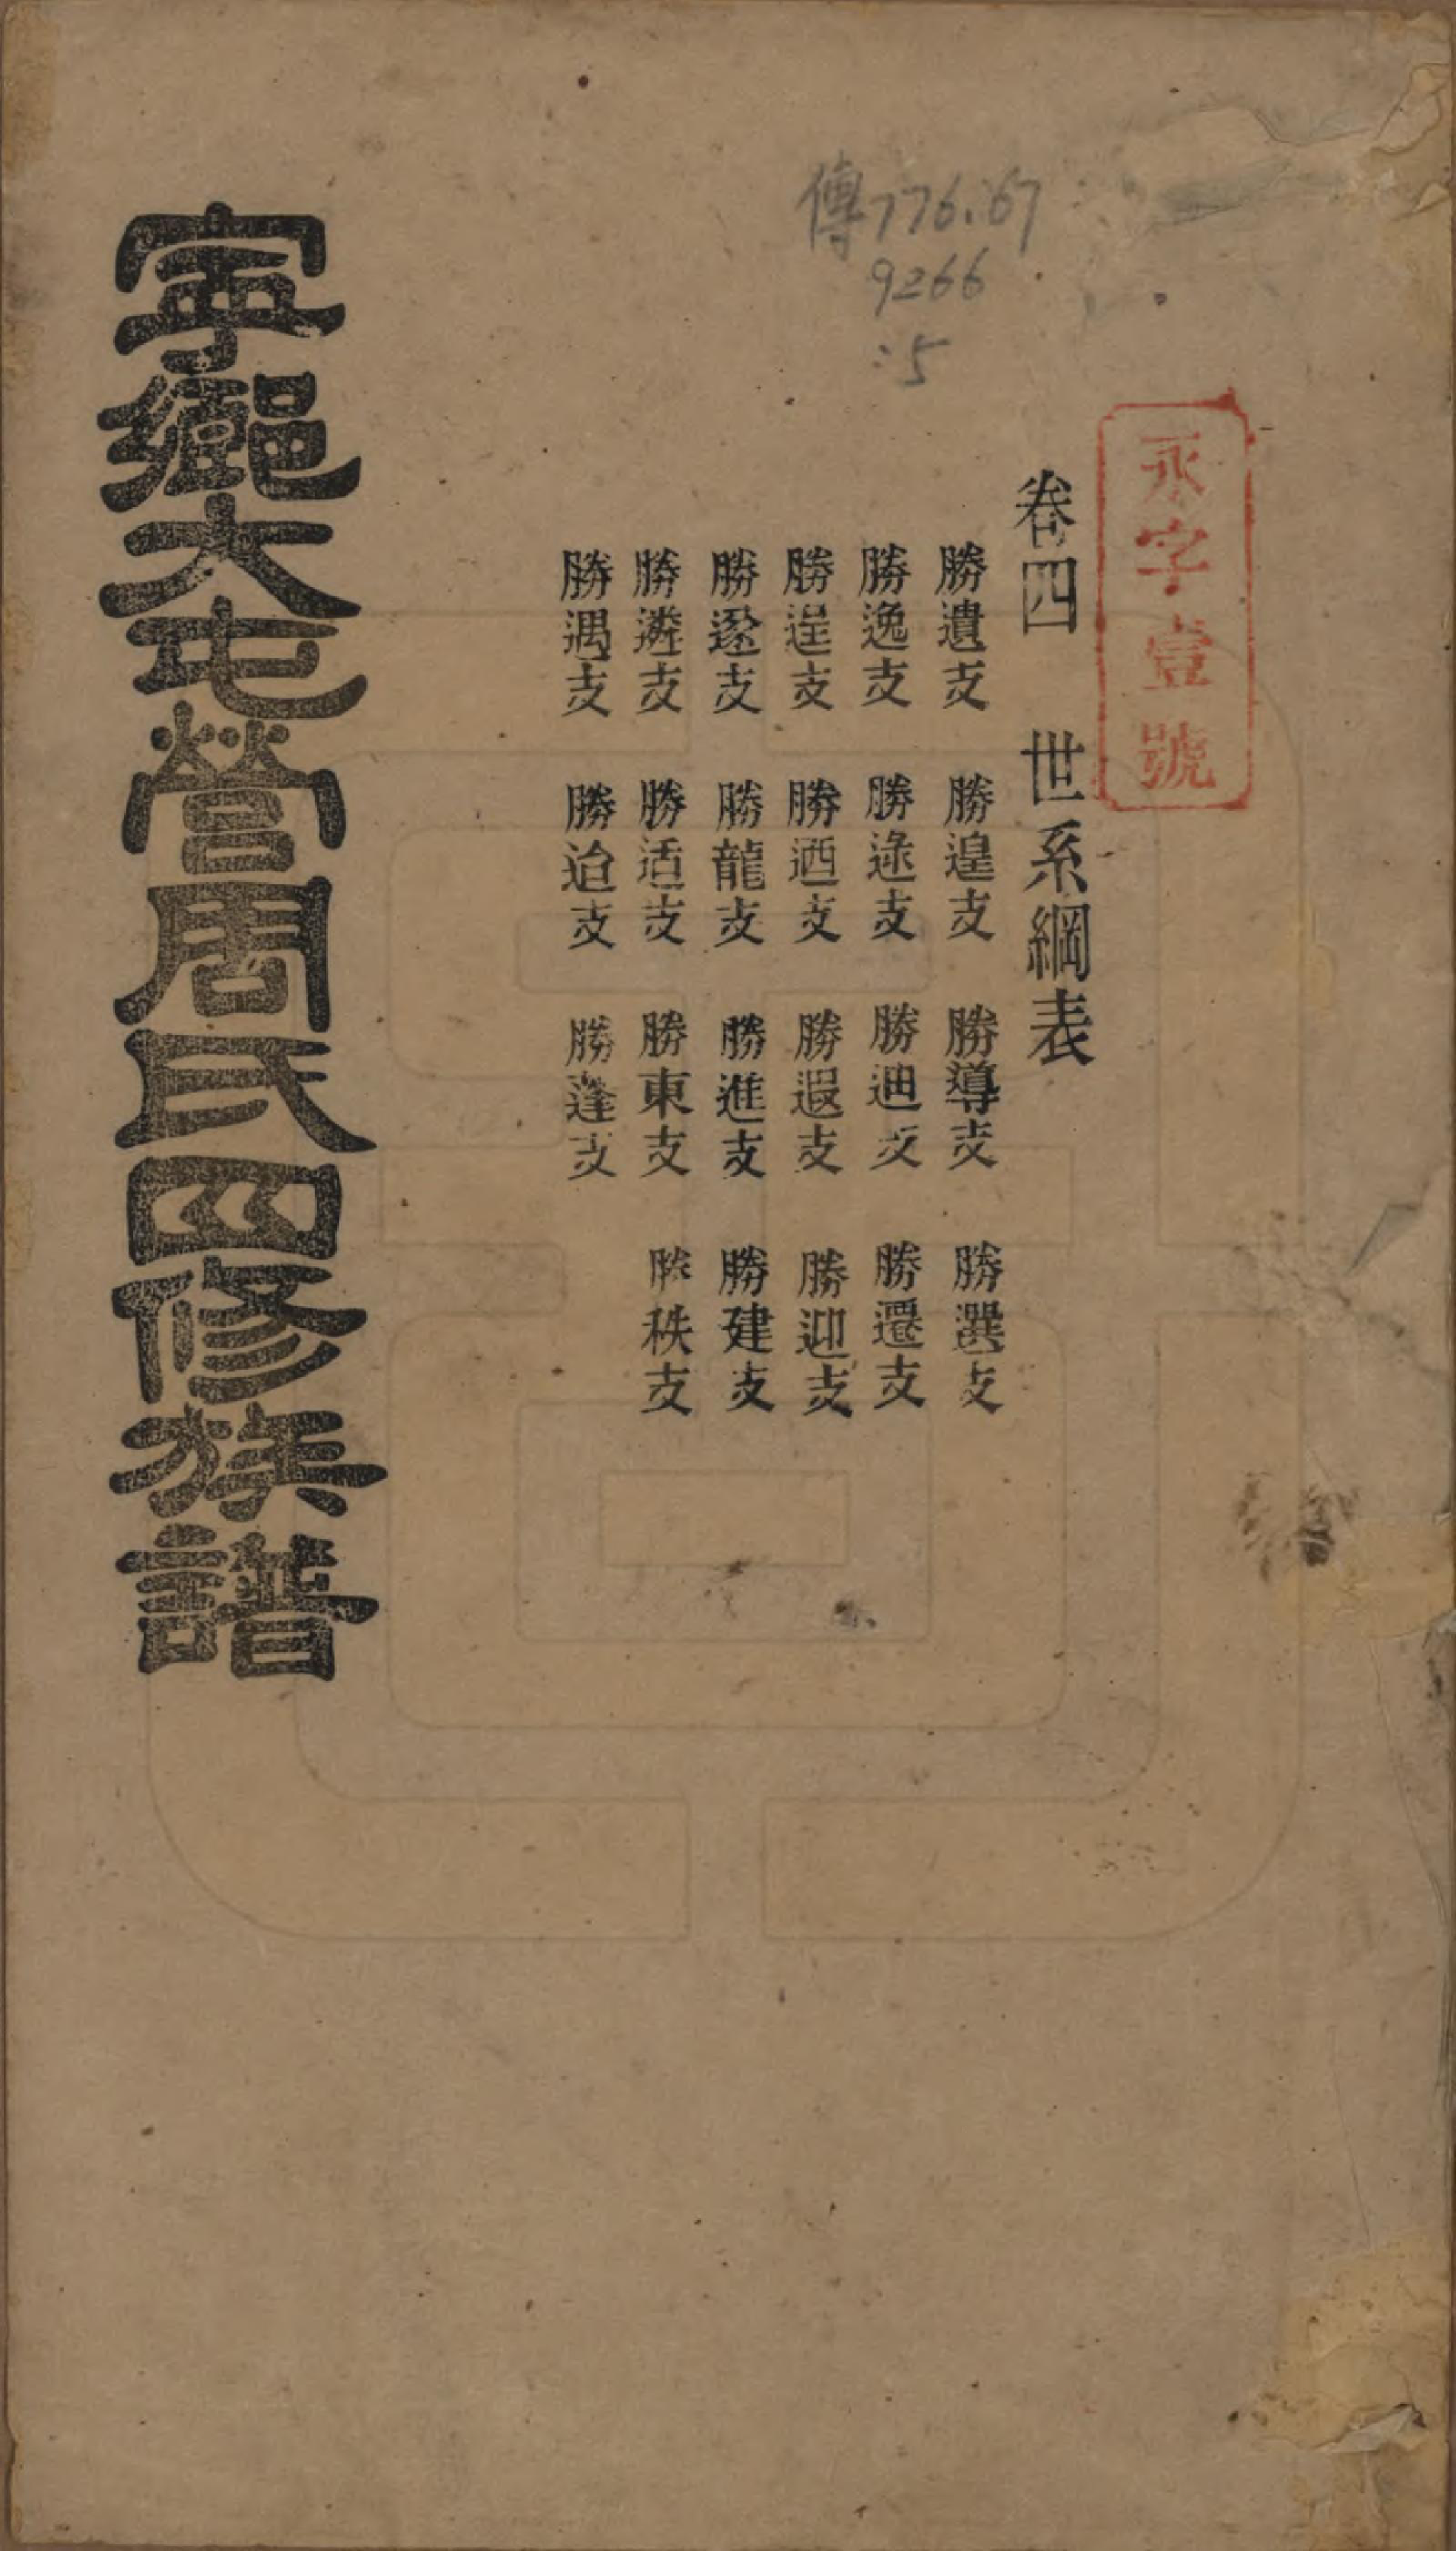 傳776.67
9266
:5
永字壹號
卷四 世系綱表
勝遺支 勝遑支 勝導支 勝選支
勝逸支 勝逯支 勝迪支 勝遷支
勝逞支 勝迺支 勝遐支 勝迎支
勝邃支 勝龍支 勝進支 勝建支
勝遴支 勝适支 勝東支 勝秩支
勝遇支 勝迨支 勝蓬支
寧鄉大屯營周氏四修族譜